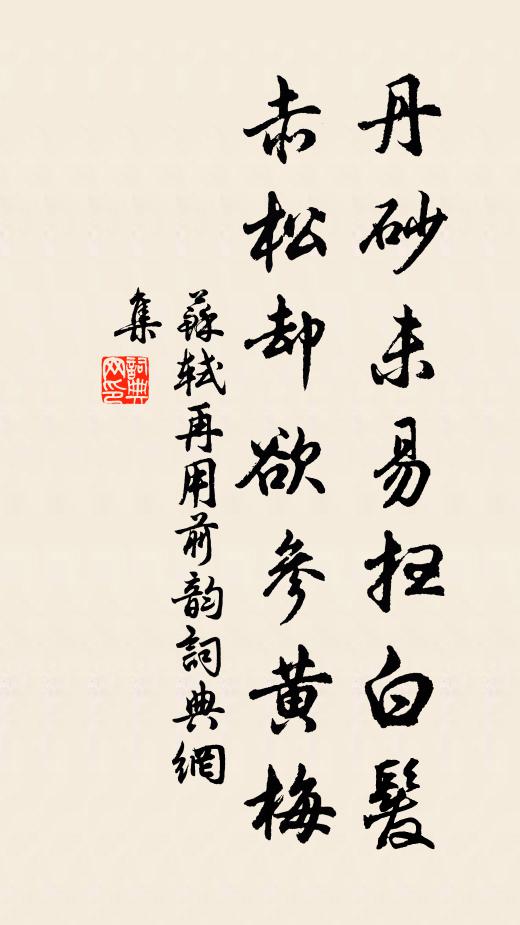 丹砂未易扫白髮
赤松却欲參黄梅
蘇軾再用前韵詞典網
集
詞典网印